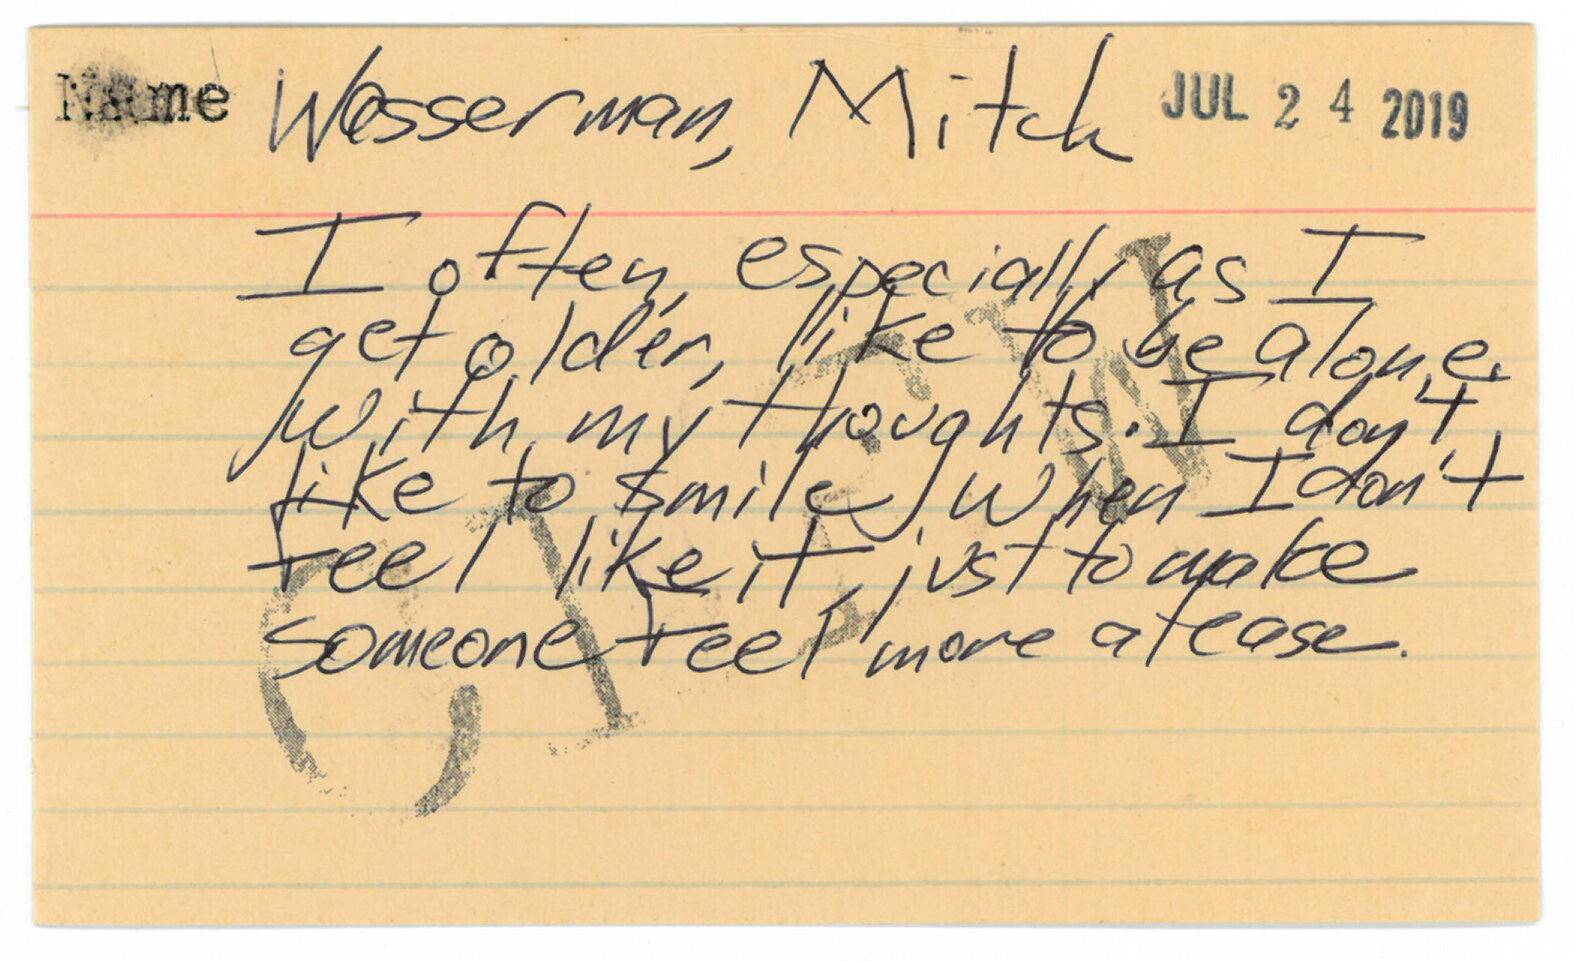 Name Wasserman, Mitch JUL 24 2019
I often, especially as I
get older, like to be alone
with my thoughts. I don't
like to smile when I don't
feel like it, just to make
someone feel more at ease.